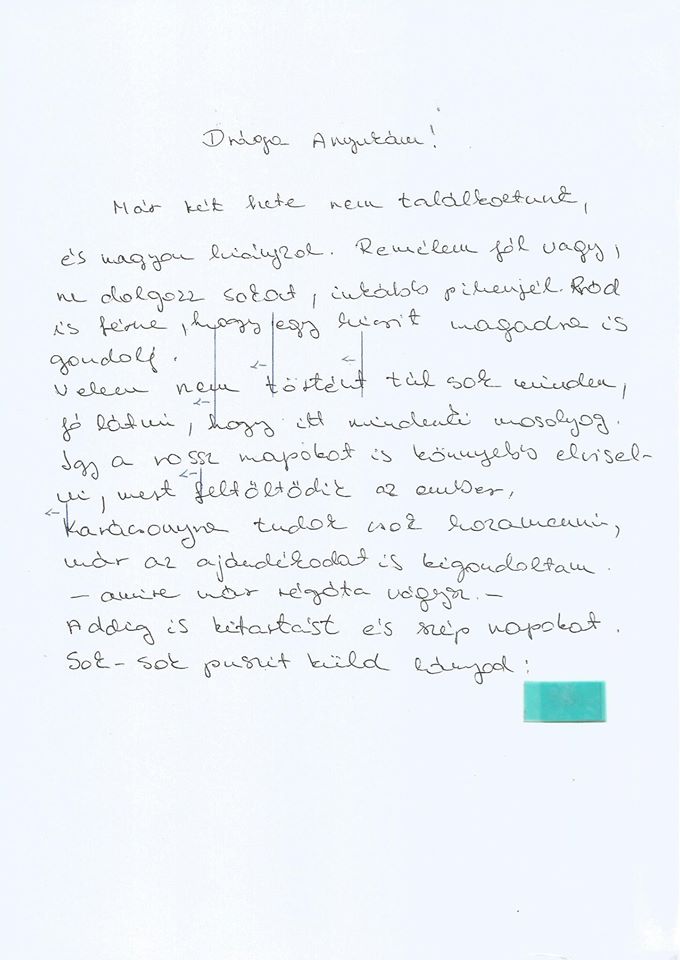 Drága Anyukám!
Már két hete nem találkoztunk,
és nagyon hiányzol. Remélem jól vagy,
ne dolgozz sokat, inkább pihenjél. Rád
is férne, hogy egy kicsit magadra is
gondolj.
Velem nem történt túl sok minden,
jó látni, hogy itt mindenki mosolyog.
Így a rossz napokat is könnyebb elvisel-
ni, mert feltöltődik az ember,
Karácsonyra tudok csak hazamenni,
már az ajándékodat is kigondoltam.
- amire már régóta vágysz. -
Addig is kitartást és szép napokat.
Sok-sok puszit küld lányod: